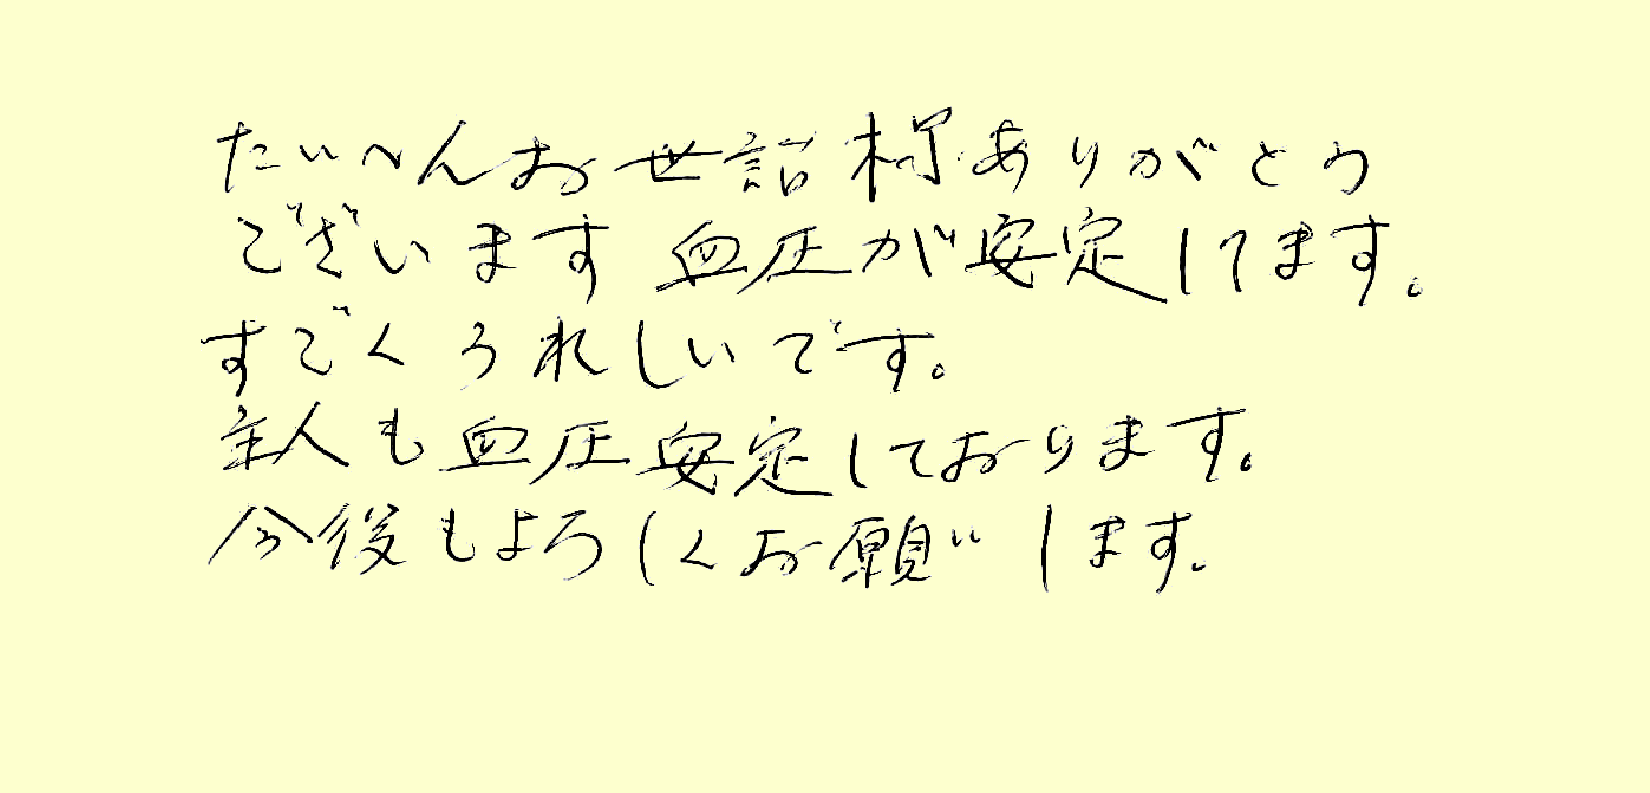 たいへんお世話様ありがとう
ございます 血圧が安定してます。
すごくうれしいです。
主人も血圧安定しております。
今後もよろしくお願いします。